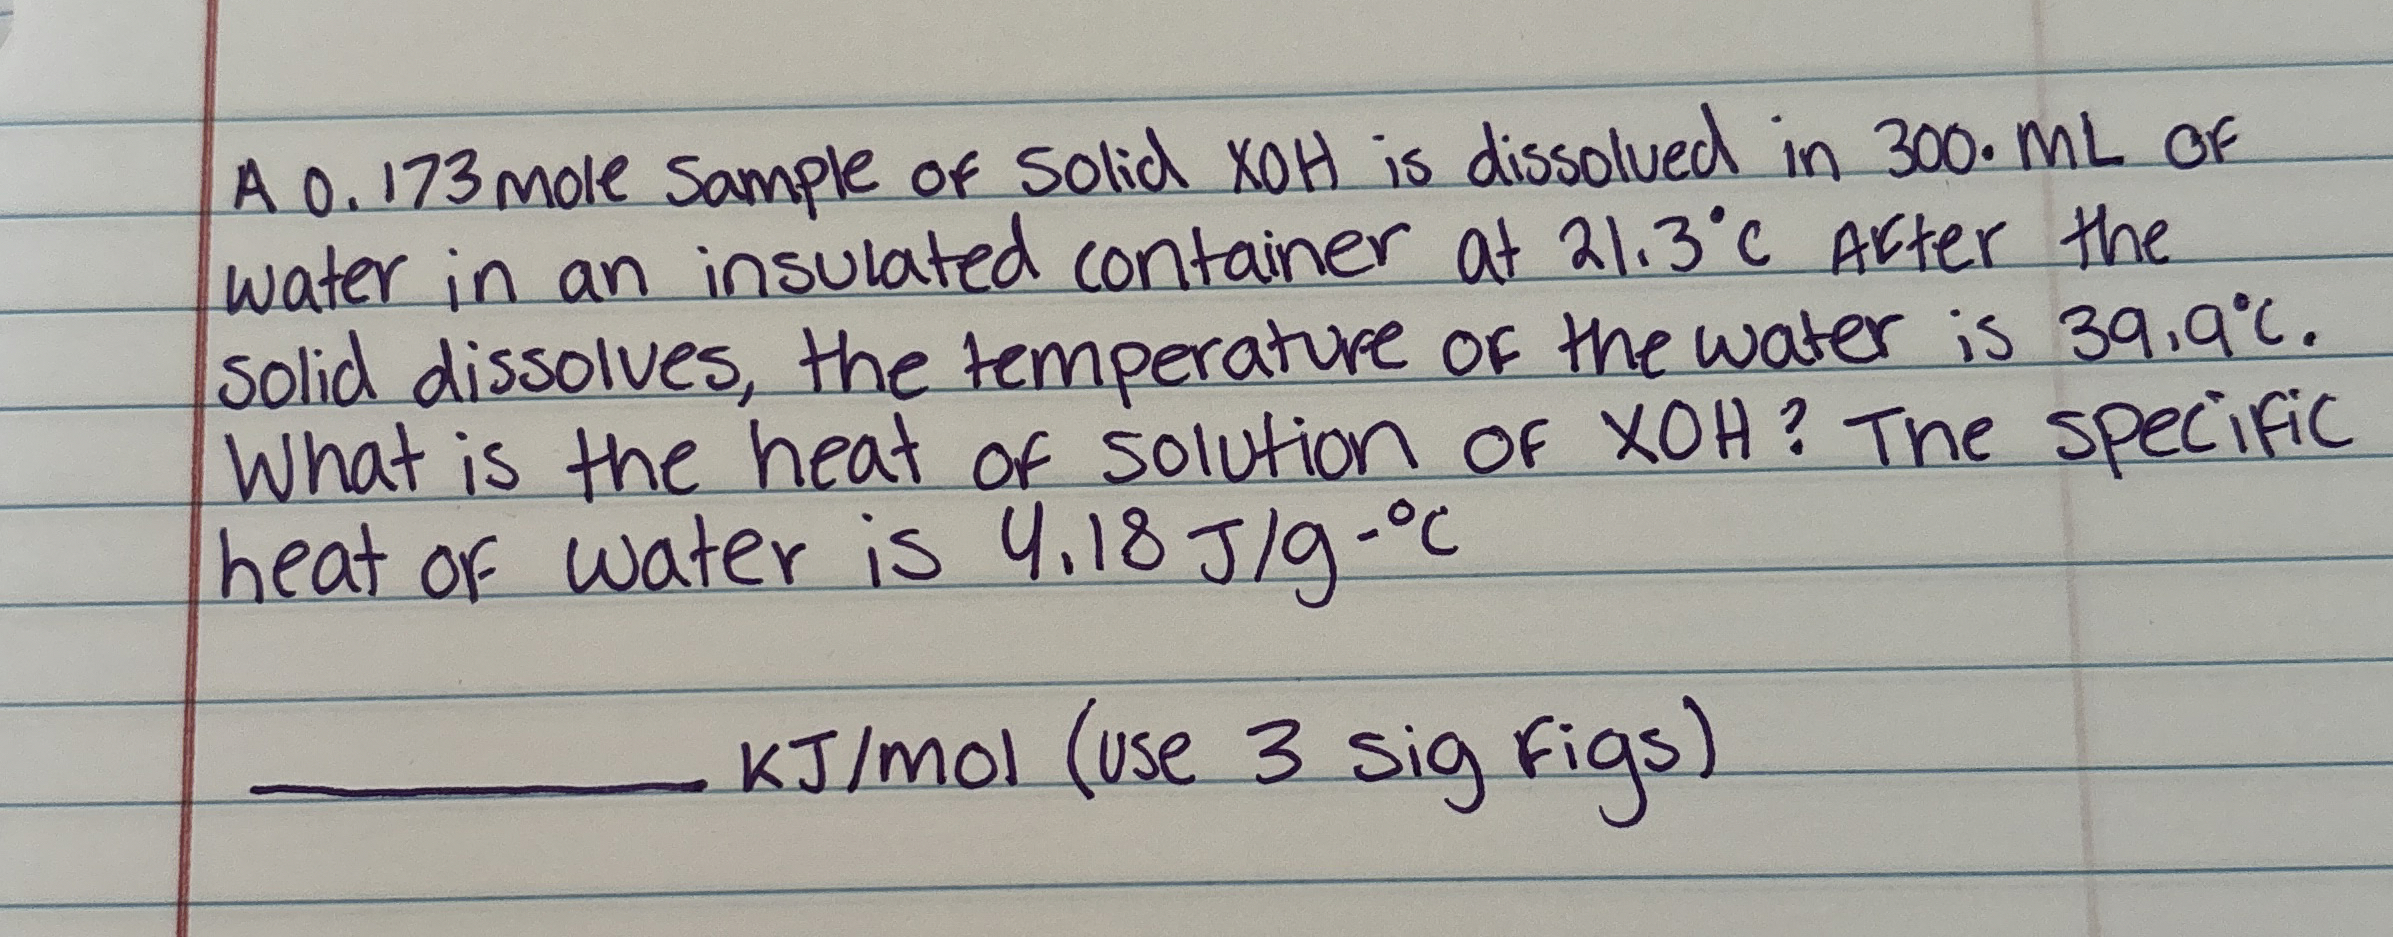 A 0.173 mole Sample of Solid XOH is dissolved in 300. mL of
water in an insulated container at 21.3°C After the
solid dissolves, the temperature of the water is 39.9°C.
What is the heat of solution of XOH? The specific
heat of water is 4.18 J/g-°C
________ KJ/mol (use 3 sig figs)